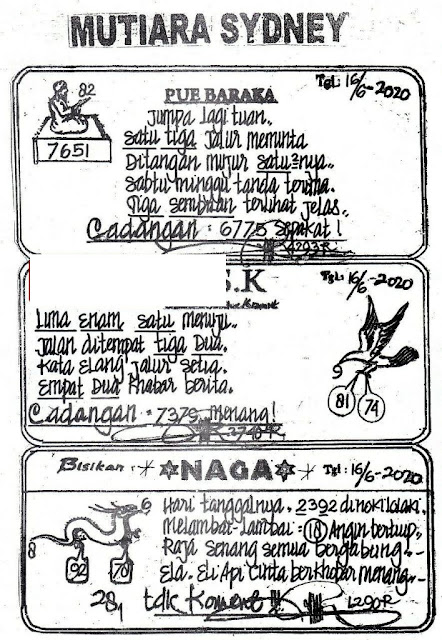 MUTIARA SYDNEY
Tgl: 16/6-2020
82
7651
PUE BARAKA
Jumpa lagi tuan.
Satu tiga jalur meminta
Ditangan mujur satu²nya..
Sabtu minggu tanda terima.
Tiga sembilan terlihat jelas..
Cadangan : 6775 Sepakat !
4293-R
S.K
Tgl: 16/6-2020
Lima Enam satu menuju..
Jalan ditempat tiga Dua.
Kata Elang jalur setia.
Empat Dua khabar berita.
Cadangan : 7379 menang!
3748-R
81 74
Bisikan : NAGA Tgl: 16/6-2020
Hari tanggalnya. 2392 di
melambat-lambai = 18 Angin bertiup.
Raja senang semua bergabung..
Ela. Eli Api cinta berkhabar menang..
6
8
92 70
28,
tdk Koment !!!
1290R